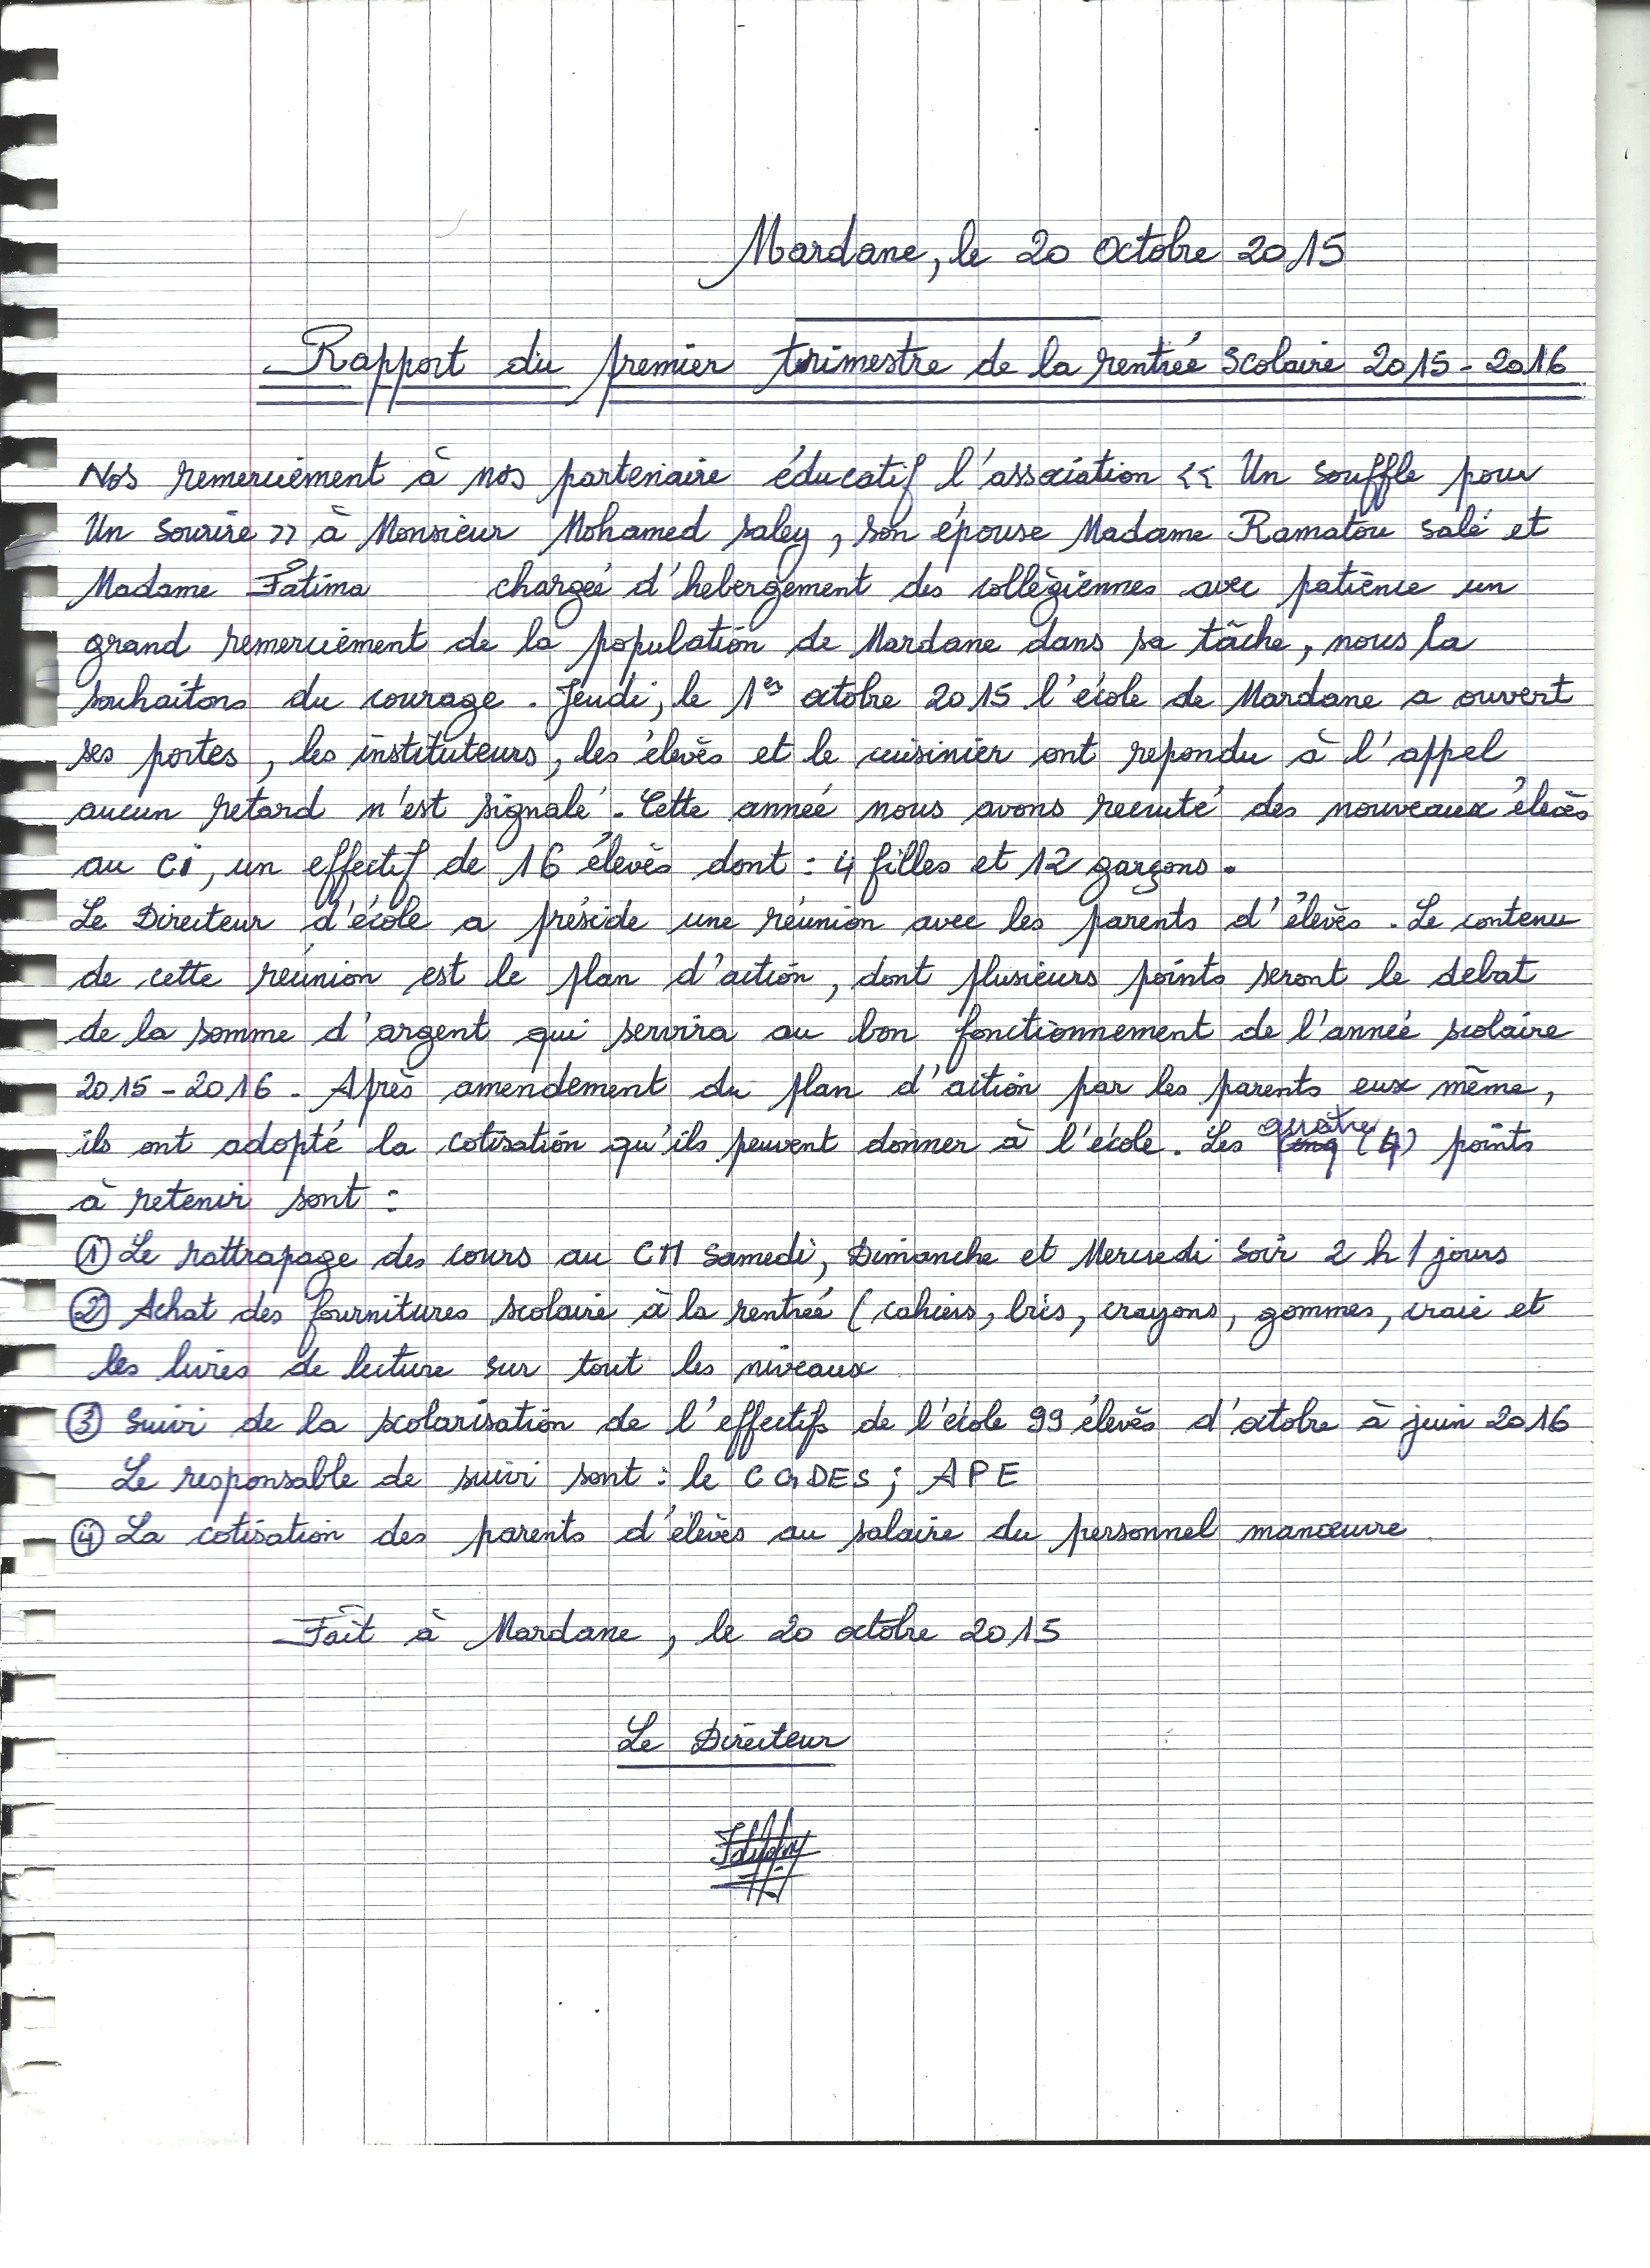 Mardane, le 20 octobre 2015
Rapport du premier trimestre de la rentrée scolaire 2015-2016
Nos remerciement à nos partenaire éducatif l'association << Un souffle pour
Un sourire >> à Monsieur Mohamed saley, son épouse Madame Ramatou salé et
Madame Fatima chargée d'hebergement des collègiennes avec patience un
grand remerciement de la population de Mardane dans sa tâche, nous la
souhaitons du courage. Jeudi, le 1er octobre 2015 l'école de Mardane a ouvert
ses portes, les instituteurs, les élevès et le cuisinier ont repondu à l'appel
aucun retard n'est signalé. Cette année nous avons recruté des nouveaux élevès
au Ci, un effectif de 16 élevès dont : 4 filles et 12 garçons.
Le Directeur d'école a préside une réunion avec les parents d'élevès. Le contenu
de cette réunion est le plan d'action, dont plusieurs points seront le debat
de la somme d'argent qui servira au bon fonctionnement de l'année scolaire
2015-2016. Après amendement du plan d'action par les parents eux même,
ils ont adopté la cotisation qu'ils peuvent donner à l'école. Les quatre (4) points
à retenir sont :
① Le rattrapage des cours au CM Samedi, Dimanche et Mercredi soir 2 h / jours
② Achat des fournitures scolaire à la rentrée (cahiers, bics, crayons, gommes, craie et
les livres de lecture sur tout les niveaux
③ Suivi de la scolarisation de l'effectifs de l'école 99 élevès d'octobre à juin 2016
Le responsable de suivi sont : le CGDES ; APE
④ La cotisation des parents d'élevès au salaire du personnel manœuvre
Fait à Mardane, le 20 octobre 2015
Le Directeur